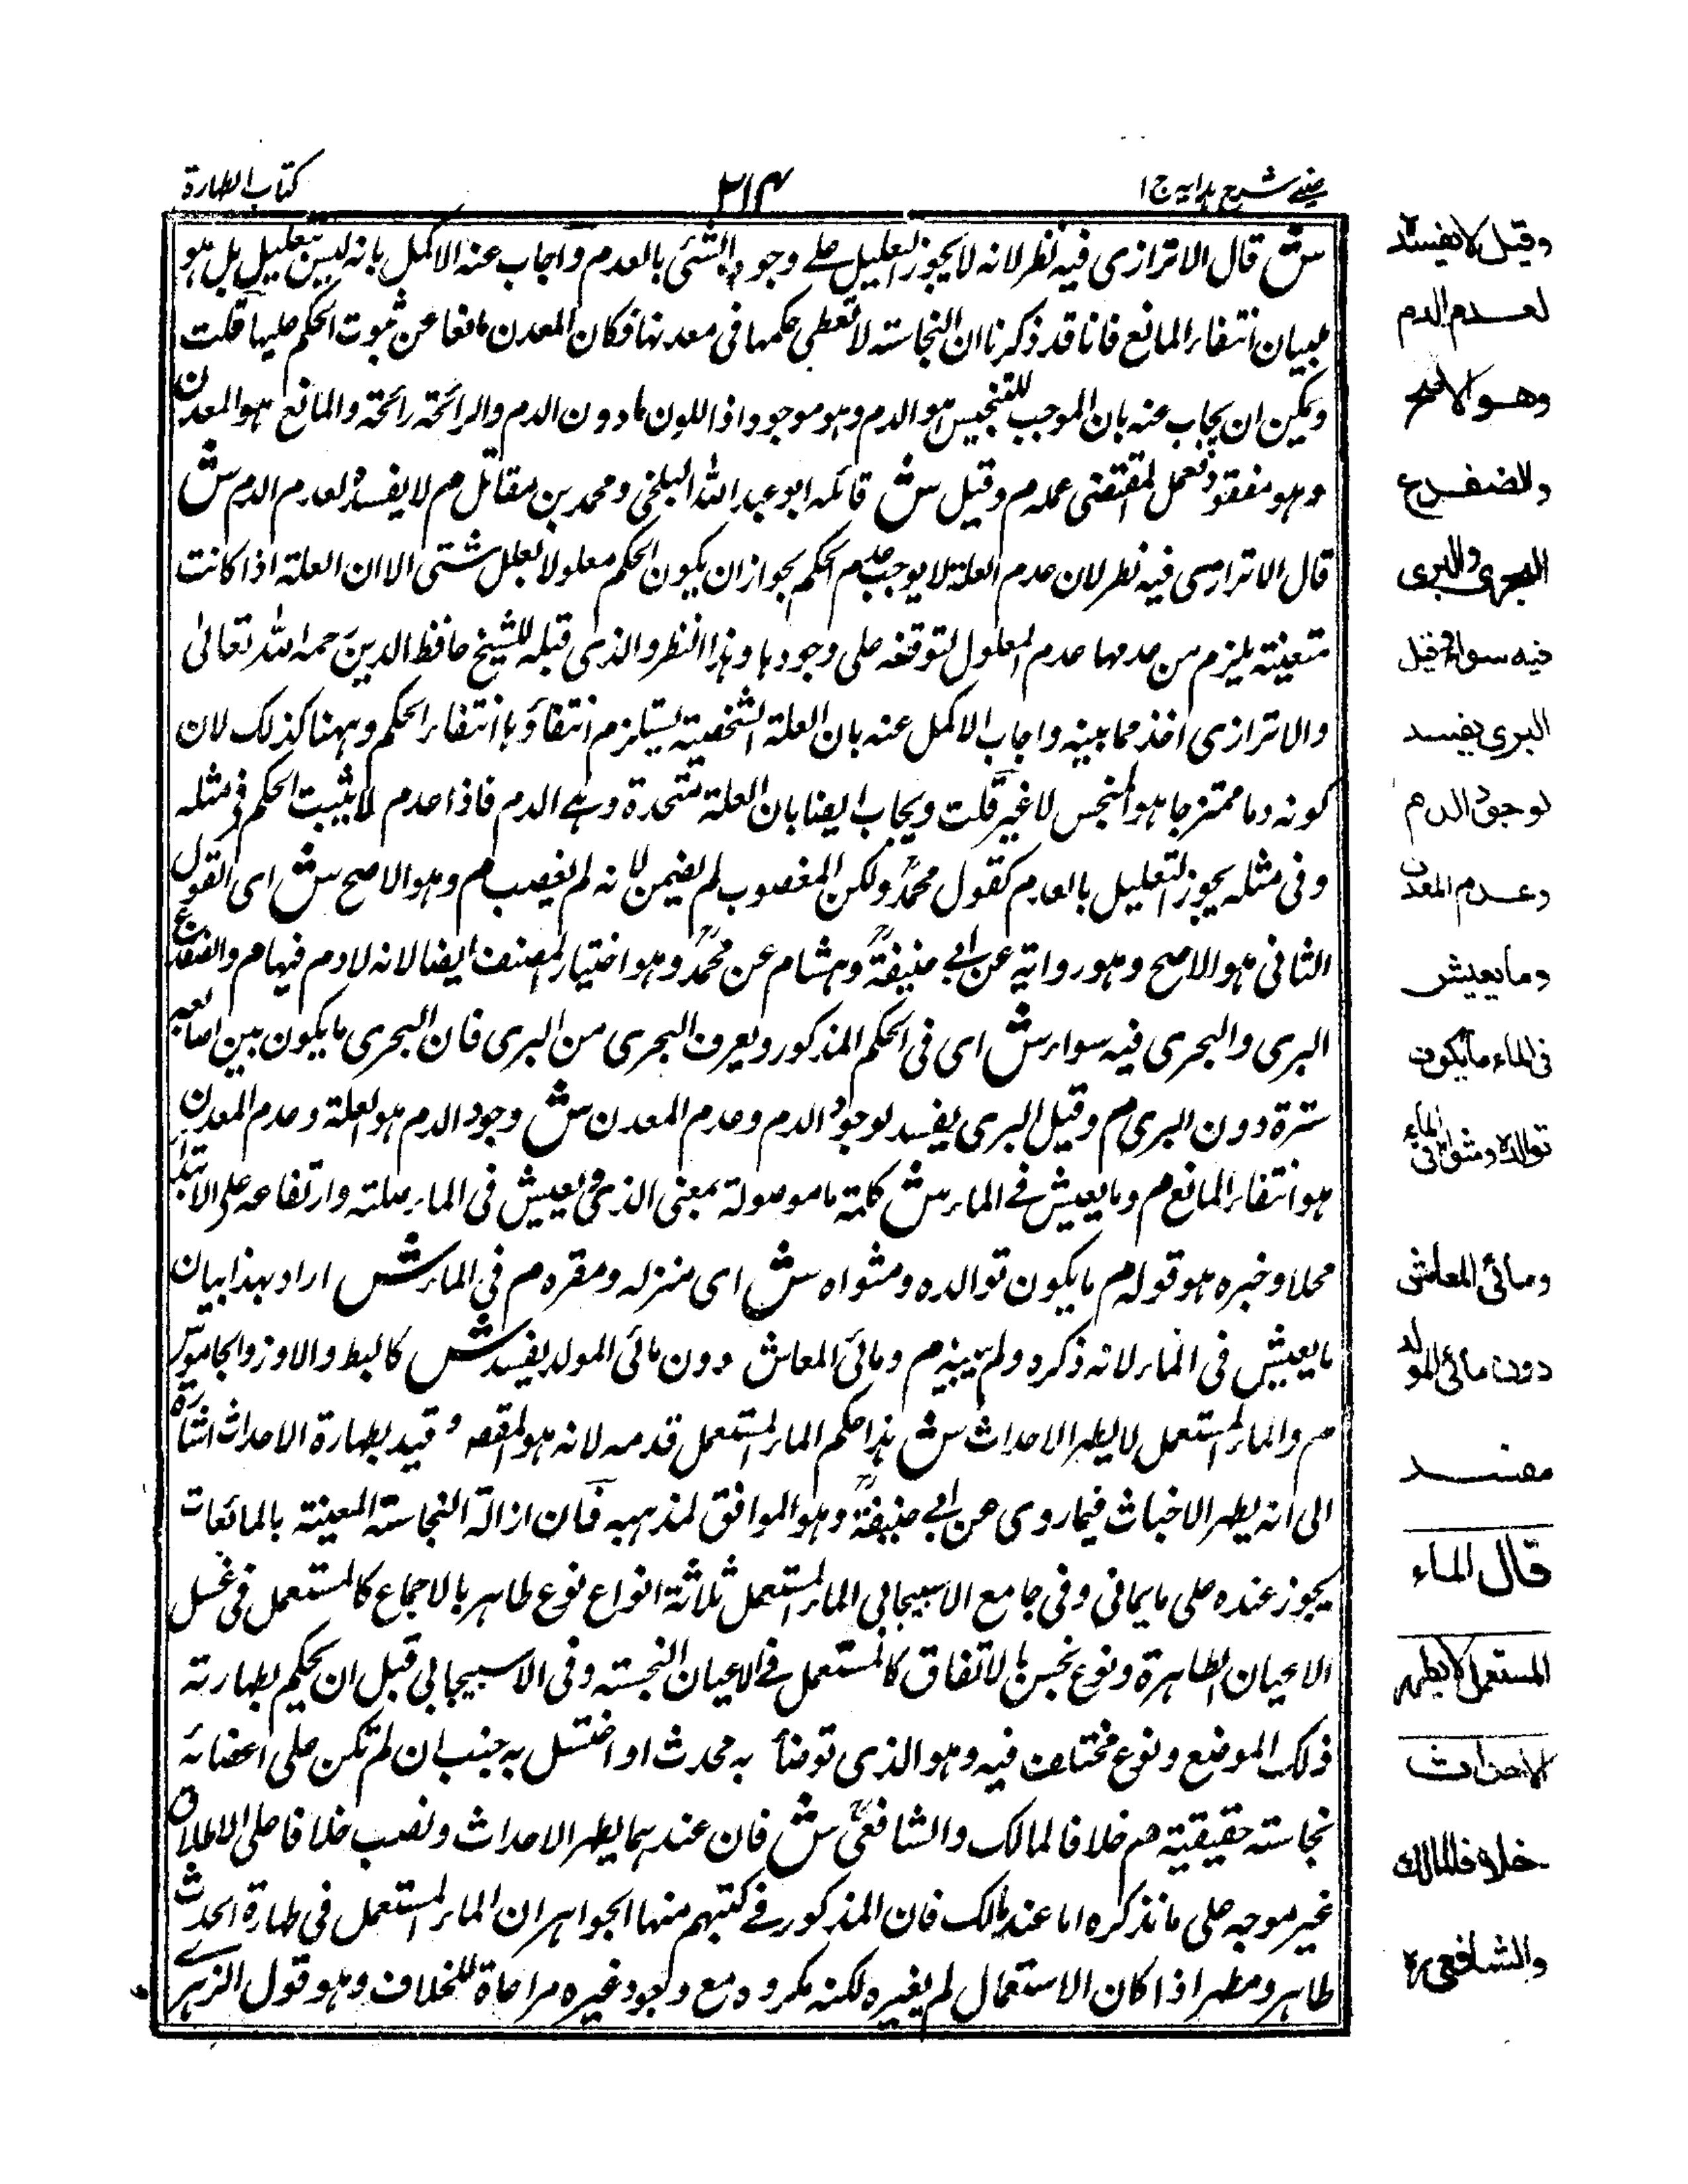 عيني شرح هدايه ج ١
٢١٤
كتاب الطهارة
ش قال الاترازى فيه نظر لانه لا يجوز التعليل على وجود الشئى بالعدم واجاب عنه الاكمل بانه ليس بتعليل بل هو
لبيان انتفاء المانع فانا قد ذكرنا ان النجاسته لا تعطى حكمها فى معدنها فكان المعدن مانعا عن ثبوت الحكم عليها قلت
ويمكن ان يجاب عنه بان الموجب للتنجيس هو الدم وهو موجود اذ اللون لون الدم والرائحة رائحة والمانع هو المعدن
وهو مفقود فعمل لمقتضى عمله م وقيل ش قائله ابو عبد الله البلخى ومحمد بن مقاتل م لا يفسد لعدم الدم ش
قال الاترازى فيه نظر لان عدم العلة لا يوجب عدم الحكم بجواز ان يكون الحكم معلولا بعلل شتى الا ان العلة اذا كانت
متعينته يلزم من عدمها عدم المعلول لتوقفه على وجودها وهذا النظر والذى قبله للشيخ حافظ الدين رحمه الله تعالى
والاترازى اخذ مما بينه واجاب الاكمل عنه بان العلة الشخصية يستلزم انتفاؤها انتفاء الحكم وههنا كذلك لان
كونه دما ممتزجا هو المنجس لا غير قلت ويجاب ايضا بان العلة متحدة وهى الدم فاذا عدم لا يثبت الحكم فى مثله
وفى مثله يجوز التعليل بالعدم كقول محمد ولكن المغصوب لم يضمن لانه لم يغصب م وهو الاصح ش اى القول
الثانى هو الاصح وهو رواية عن ابى حنيفة وهشام عن محمد وهو اختيار المصنف ايضا لانه لا دم فيها م والضفدع
البرى والبحرى فيه سواء ش اى فى الحكم المذكور ويعرف البحرى من البرى فان البحرى ما يكون بين اصابعه
سترة دون البرى م وقيل البرى يفسد لوجود الدم وعدم المعدن ش وجود الدم هو العلة وعدم المعدن
هو انتفاء المانع م وما يعيش فى الماء ش كلمة ما موصولة بمعنى الذى يعيش فى الماء صلته وارتفاعه على الابتداء
محلا وخبره هو قوله م ما يكون توالده ومثواه ش اى منزله ومقره م فى الماء ش اراد بهذا بيان
ما يعيش فى الماء لانه ذكره ولم يبينه م ومائى المعاش دون مائى المولد يفسد ش كالبط والاوز والجاموس
م والماء المستعمل لا يطهر الاحداث ش هذا حكم الماء المستعمل قدمه لانه هو المقصود قيد بطهارة الاحداث اشارة
الى انه يطهر الاخباث فيما روى عن ابى حنيفة وهو الموافق لمذهبه فان ازالة النجاسته المعينة بالمائعات
يجوز عنده على ما ياتى وفى جامع الاسبيجابى الماء المستعمل ثلاثة انواع نوع طاهر بالاجماع كالمستعمل فى غسل
الاعيان الطاهرة ونوع نجس بالاتفاق كالمستعمل فى الاعيان النجسته وفى الاسبيجابى قبل ان يحكم بطهارته
ذلك الموضع ونوع مختلف فيه وهو الذى توضأ به محدث او اغتسل به جنب ان لم تكن على اعضائه
نجاسته حقيقية م خلافا لمالك والشافعى ش فان عندهما يطهر الاحداث ونصب خلافا على الاطلاق
غير موجه على ما نذكره اما عند مالك فان المذكور فى كتبهم منها الجواهر ان الماء المستعمل فى طهارة الحدث
طاهر ومطهر اذا كان الاستعمال لم يغيره لكنه مكروه مع وجود غيره مراعاة للخلاف وهو قول الزهرى
وقيل لا يفسد
لعدم الدم
وهو الاصح
والضفدع
البحرى والبرى
فيه سواء وقيل
البرى يفسد
لوجود الدم
وعدم المعدن
وما يعيش
فى الماء ما يكون
توالده ومثواه فى الماء
ومائى المعاش
دون مائى المولد
مفسد
قال الماء
المستعمل لا يطهر
الاحداث
خلافا لمالك
والشافعى ره